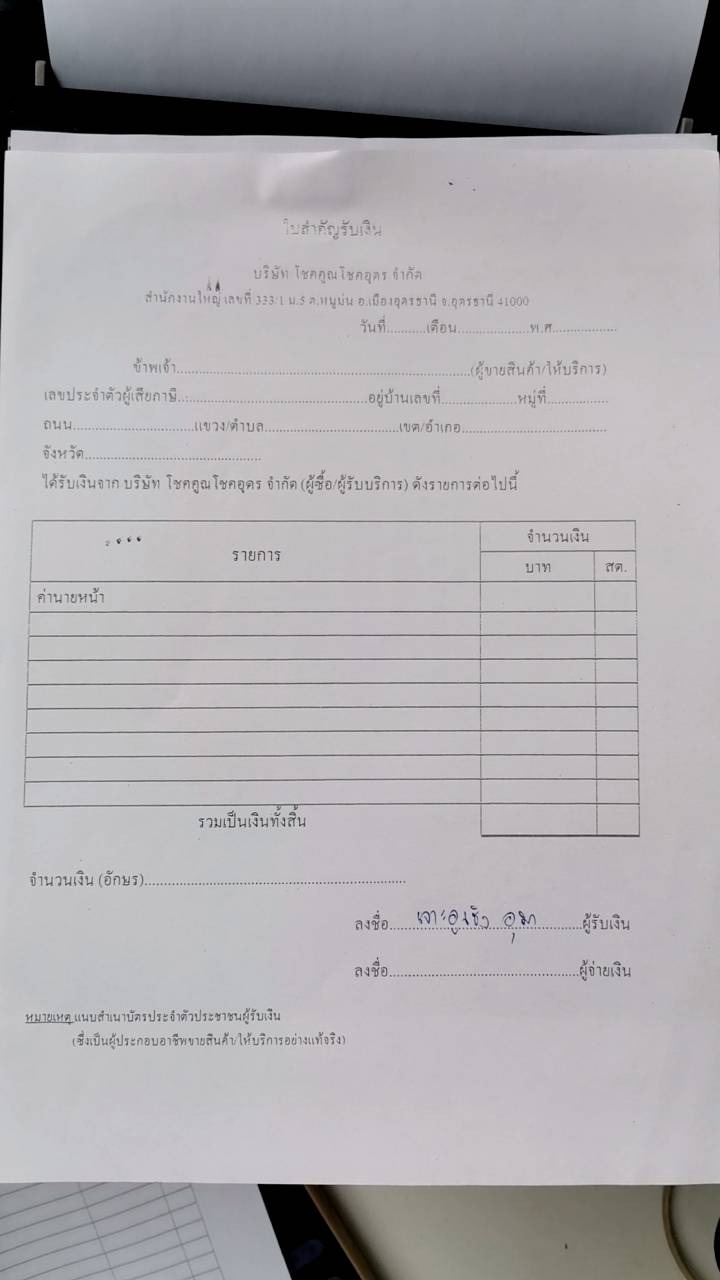 ใบสำคัญรับเงิน
บริษัท โชคคูณโชคอุดร จำกัด
สำนักงานใหญ่ เลขที่ 333/1 ม.5 ต.หมูม่น อ.เมืองอุดรธานี จ.อุดรธานี 41000
วันที่..........เดือน..................พ.ศ................
ข้าพเจ้า..........................................................................(ผู้ขายสินค้า/ให้บริการ)
เลขประจำตัวผู้เสียภาษี................................................อยู่บ้านเลขที่...................หมู่ที่...............
ถนน...............................แขวง/ตำบล..................................เขต/อำเภอ.....................................
จังหวัด.............................................
ได้รับเงินจาก บริษัท โชคคูณโชคอุดร จำกัด (ผู้ซื้อ/ผู้รับบริการ) ดังรายการต่อไปนี้
รายการ จำนวนเงิน
บาท สต.
ค่านายหน้า
รวมเป็นเงินทั้งสิ้น
จำนวนเงิน (อักษร)..................................................................
ลงชื่อ................................................ผู้รับเงิน
ลงชื่อ................................................ผู้จ่ายเงิน
หมายเหตุ แนบสำเนาบัตรประจำตัวประชาชนผู้รับเงิน
(ซึ่งเป็นผู้ประกอบอาชีพขายสินค้า/ให้บริการอย่างแท้จริง)